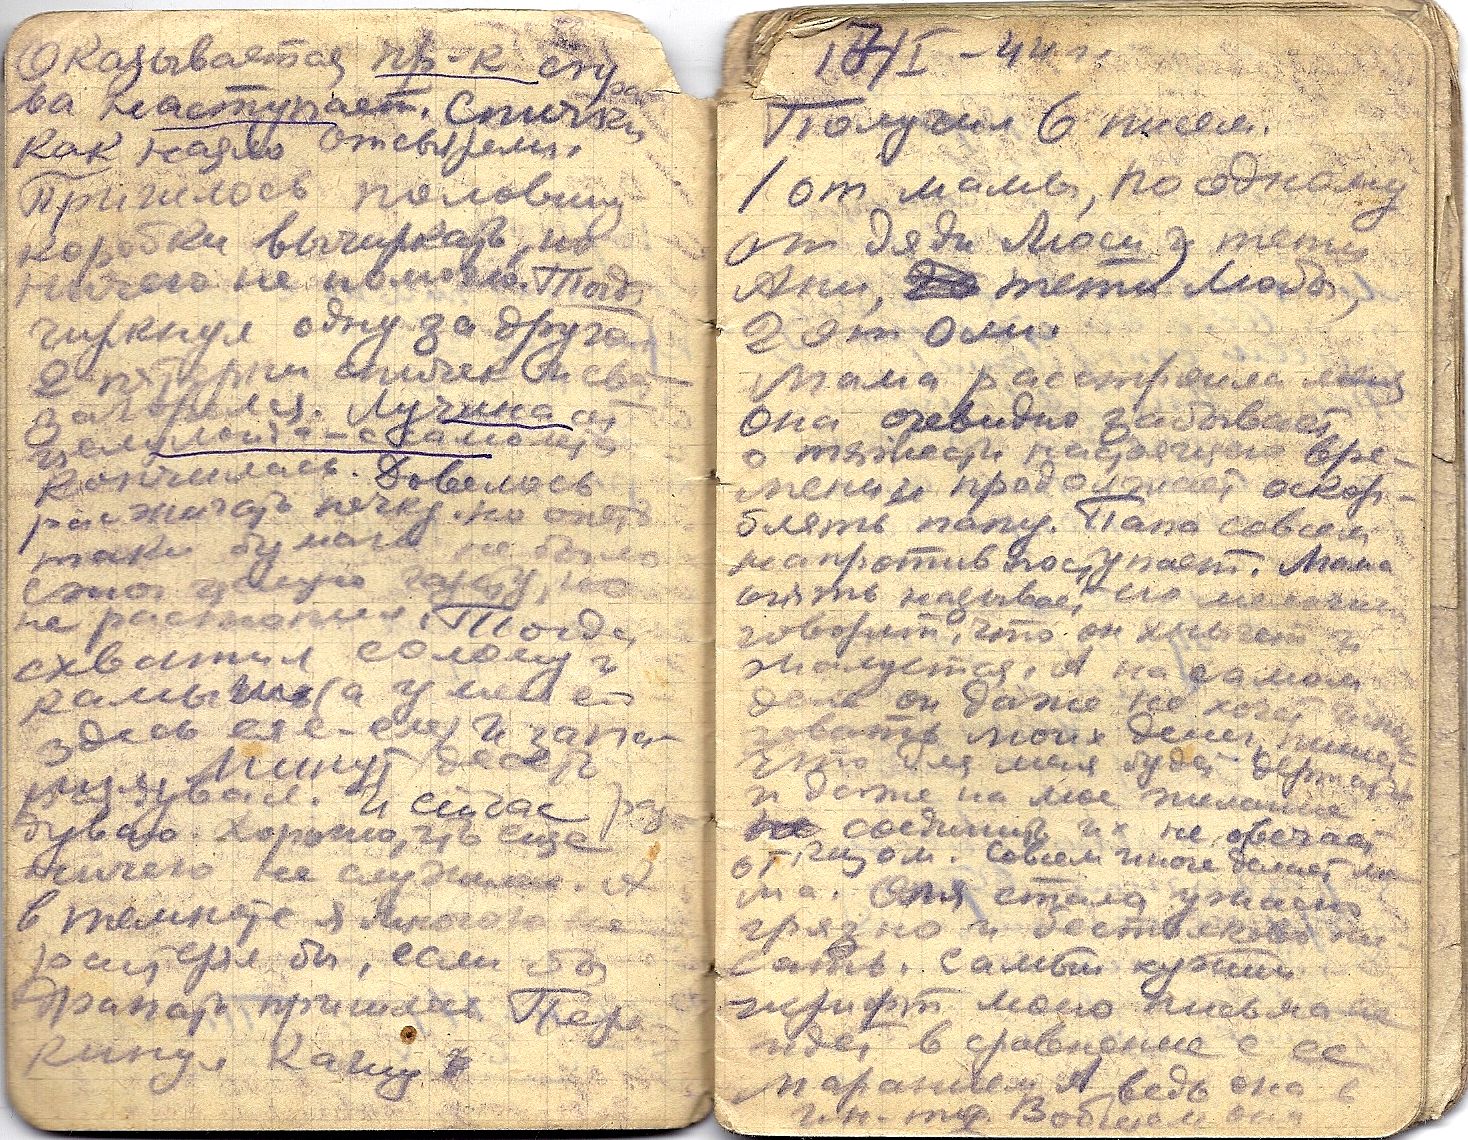 Оказывается пр-к сно
ва наступает. Спички
как назло отсырели.
Пришлось половину
коробки вычиркать, но
ничего не помогло. Тогда
чиркнул одну за другой
2 пятерки спичек и све
загорелся. Лучина
кончилась. Довелось
разжигать печку. но опять
таки бумаги не было
сжег целую газету, но
не растопил. Тогда
схватил солому и
камыш (а у меня ей
здесь еле-еле) и запа-
Минут десять
раздувал. И сейчас раз
дуваю. Хорошо, что еще
ничего не случилось. А
в темноте я многого не
растерял бы, если бы
драпать пришлось. Пере-
кинул кашу
17/I-44 г.
Получил 6 писем.
1 от мамы, по одному
от дяди Люси и тети
Ани, тети Любы,
2 от Оли.
Мама расстроила меня
она очевидно забывает
о тяжести настоящего вре-
мени и продолжает оскор-
блять папу. Папа совсем
напротив поступает. Мама
опять называет его
говорит, что он хнычет и
жалуется. А на самом
деле он даже не хочет
моих денег, пишет
что для меня будет держать
и даже на мое желание
соединить их не отвечает
отказом. Совсем иное делает ма
ма. Оля стала ужасно
грязно и бестолково пи-
сать. Самый худший
шрифт моего письма не
идет в сравнение с ее
маранием. А ведь она в
ин-те. Вобщем она